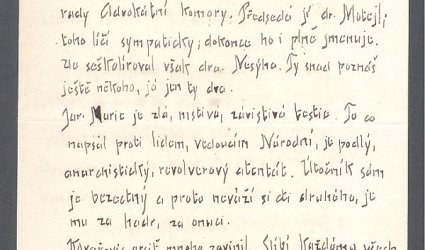 rady Advokátní komory. Předsedá jí dr. Matejl;
toho líčí sympaticky; dokonce ho i plně jmenuje.
Zle seškalíroval však dra. Nesýho. Ty snad poznáš
ještě někoho, já jen ty dva.
Jar. Maric je zlá, mstivá, závistivá bestie. To co
napsal proti lidem, vedoucím Národní, je podlý,
anarchistický, revolverový atentát. Útočník sám
je bezectný a proto neváží si cti druhého, je
mu za hadr, za onuci.
mnoho zavinil. Slíbí každému všech